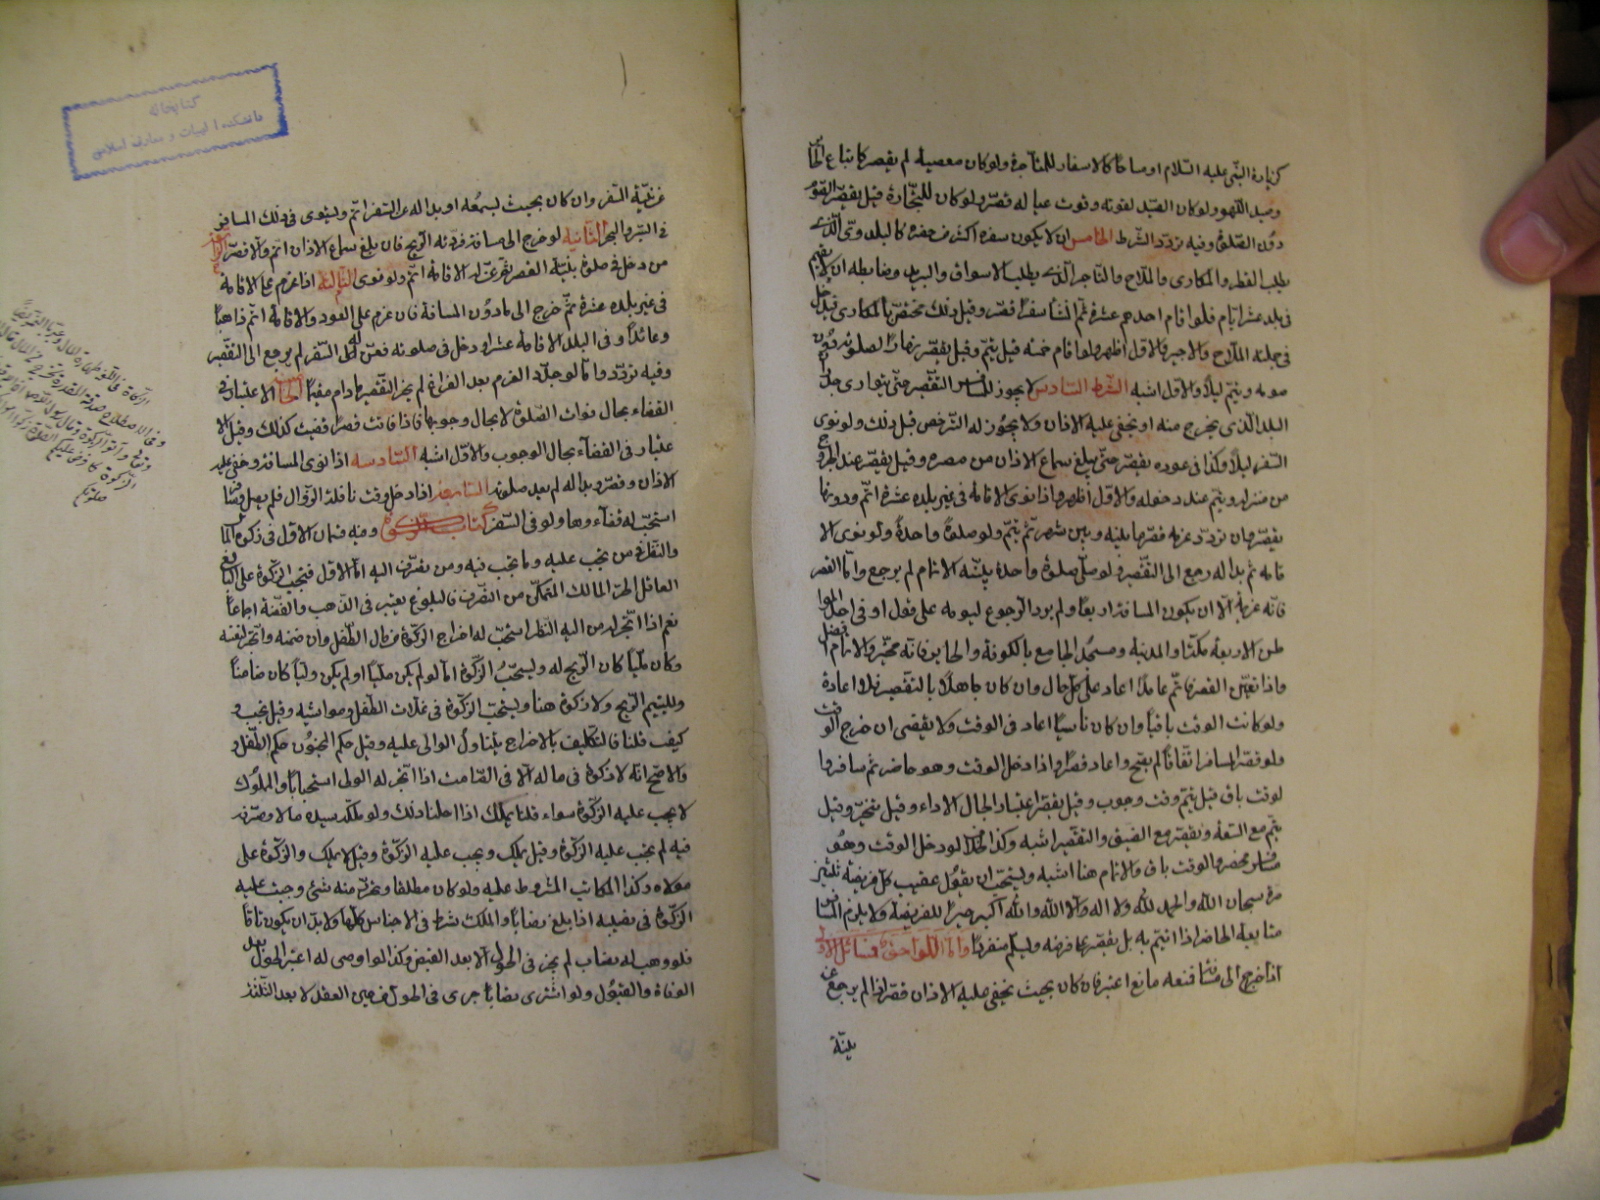 كزيارة النبي عليه السلام او مباحا كالاسفار للمتاجرة ولو كان معصية لم يقصر كاتباع الجائر
وصيد اللهو ولو كان الصيد لقوته وقوت عياله قصر ولو كان للتجارة قيل يقصر الصوم
دون الصلوة وفيه تردد الشرط الخامس ان لا يكون سفره اكثر من حضره كالبدوى الذى
يطلب القطر والمكارى والملاح والتاجر الذى يطلب الاسواق والبريد وضابطه ان لا يقيم
فى بلده عشرة ايام فلو اقام احدهم عشرة ثم انشأ سفرا قصر وقيل ذلك مختص بالمكارى فيدخل
فى جملته الملاح والاجير والاول اظهر ولو اقام خمسة قيل يتم وقيل يقصر نهارا لصلوته دون
صومه ويتم ليلا والاول اشبه الشرط السادس لا يجوز للمسافر التقصير حتى يتوارى جدران
البلد الذى يخرج منه او يخفى عليه الاذان ولا يجوز له الترخص قبل ذلك ولو نوى
السفر ليلا وكذا فى عوده يقصر حتى يبلغ سماع الاذان من مصره وقيل يقصر عند الخروج
من منزله ويتم عند دخوله والاول اظهر واذا نوى الاقامة فى غير بلده عشرة اتم ودونها
يقصر وان تردد عزمه قصر ما بينه وبين شهر ثم يتم ولو صلوة واحدة ولو نوى الا
قامة ثم بدا له رجع الى التقصير ولو صلى صلوة واحدة بنية الاتمام لم يرجع واما القصر
فانه عزيمة الا ان يكون المسافة اربعا ولم يرد الرجوع ليومه على قول او فى احد الموا
طن الاربعة مكة والمدينة ومسجد الجامع بالكوفة والحاير فانه مخير والاتمام افضل
واذا تعين القصر فاتم عامدا اعاد على كل حال وان كان جاهلا بالتقصير فلا اعادة
ولو كانت الوقت باقيا وان كان ناسيا اعاد فى الوقت ولا يقضى ان خرج الوقت
ولو قصر المسافر اتفاقا لم يصح واعاد قصرا واذا دخل الوقت وهو حاضر ثم سافر وا
لوقت باق قيل يتم وقت وجوب وقيل يقصر اعتبارا لحال الاداء وقيل يتخير وقيل
يتم مع السعة ويقصر مع الضيق والتقصير اشبه وكذا الخلاف لو دخل الوقت وهو
مسافر فحضر والوقت باق والاتمام هنا اشبه ويستحب ان يقول عقيب كل فريضة ثلثين
مرة سبحان الله والحمد لله ولا اله الا الله والله اكبر جبرا للفريضة ولا يلزم المسافر
متابعة الحاضر اذا ائتم به بل يقصر فرضه ويسلم منفردا واما اللواحق فمسائل الاولى
اذا خرج الى مسافة فمنعه مانع اعتبر فان كان بحيث يخفى عليه الاذان قصر اذا لم يرجع عن
بلية
عن نية السفر وان كان بحيث يسمعه او بدا له عن السفر اتم ويستوى فى ذلك المسافر
فى البر والبحر الثانية لو خرج الى مسافة فردته الريح فان بلغ سماع الاذان اتم والا قصر الرابعة
من دخل فى صلوة بنية القصر ثم عن له الاقامة اتم ولو نوى الثالثة اذا عزم على الاقامة
فى غير بلده عشرة ثم خرج الى ما دون المسافة فان عزم على العود والاقامة اتم ذاهبا
وعائدا وفى البلد الاقامة عشرا ودخل فى صلوته فعن له السفر لم يرجع الى التقصير
وفيه تردد واما لو جدد العزم بعد الفراغ لم يجز التقصير مادام مقيما الخامسة الاعتبار فى
القضاء بحال فوات الصلوة لا بحال وجوبها فاذا فاتت قصرا قضيت كذلك وقيل الا
عتبار فى القضاء بحال الوجوب والاول اشبه السادسة اذا نوى المسافة وخفى عليه
الاذان وقصر وبدا له لم يعد صلوته السابعة اذا دخل وقت نافلة الزوال فلم يصل وسافر
استحب له قضاءها ولو فى السفر كتاب الزكوة وفيه قسمان الاول فى زكوة المال
والنظر فى من تجب عليه وما تجب فيه ومن تصرف اليه اما الاول فتجب الزكوة على البالغ
العاقل الحر المالك المتمكن من التصرف فالبلوغ يعتبر فى الذهب والفضة اجماعا
نعم اذا اتجر له من اليه النظر استحب له اخراج الزكوة من مال الطفل وان ضمنه واتجر لنفسه
وكان مليا كان الربح له ويستحب الزكوة اما لو لم يكن مليا او لم يكن وليا كان ضامنا
ولليتيم الربح ولا زكوة هنا ويستحب الزكوة فى غلات الطفل ومواشيه وقيل تجب و
كيف قلنا فالتكليف بالاخراج يتناول الوالى عليه وقيل حكم المجنون حكم الطفل و
والاصح انه لا زكوة فى ماله الا فى الصامت اذا اتجر له الولى استحبابا والمملوك
لا يجب عليه الزكوة سواء قلنا يملك اذا احلنا ذلك ولو ملكه سيده مالا وصرفه
فيه لم تجب عليه الزكوة وقيل يملك ويجب عليه الزكوة وقيل لا يملك والزكوة على
مولاه وكذا المكاتب المشروط عليه ولو كان مطلقا وتحرر منه شئ وجبت عليه
الزكوة فى نصيبه اذا بلغ نصابا والملك شرط فى الاجناس كلها ولا بد ان يكون تاما
فلو وهب له نصاب لم يجر فى الحول الا بعد القبض وكذا لو اوصى له اعتبر الحول بعد
الوفاة والقبول ولو اشترى نصابا جرى فى الحول من حين العقد لا بعد الثلثة
كتابخانه
دانشكده الهيات و معارف اسلامى